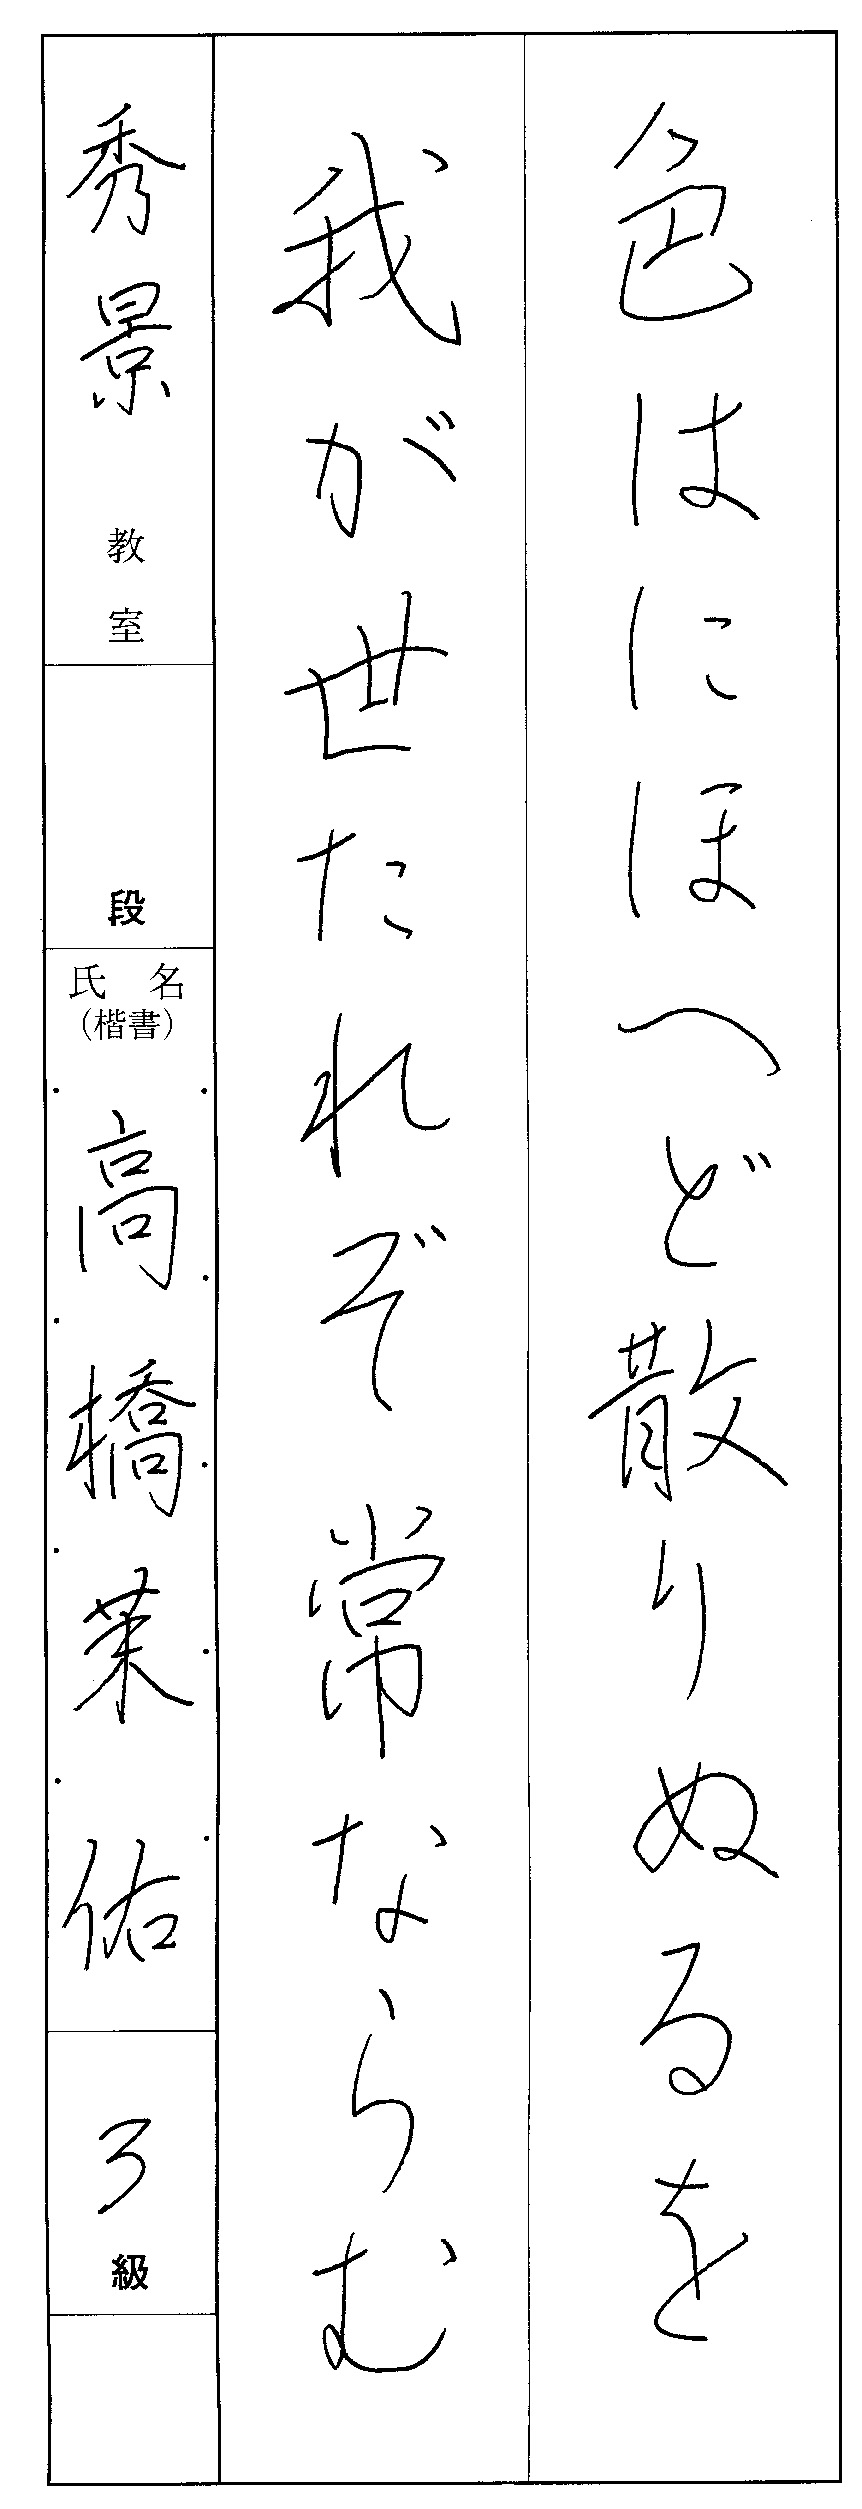 色はにほへど散りぬるを
我が世たれぞ常ならむ
秀景教室
段
氏名
(楷書)
高橋茉佑
3級